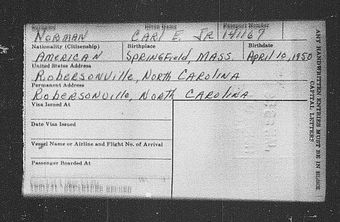 Given Name Passport Number
NORMAN CARL E. JR 141167
Nationality (Citizenship) Birthplace Birthdate
AMERICAN SPRINGFIELD, MASS. APRIL 10, 1950
United States Address
ROBERSONVILLE, NORTH CAROLINA
Permanent Address
ROBERSONVILLE, NORTH CAROLINA
Visa Issued At
Date Visa Issued
Vessel Name or Airline and Flight No. of Arrival
Passenger Boarded At
ANY HANDWRITTEN ENTRIES MUST BE IN BLOCK
CAPITAL LETTERS